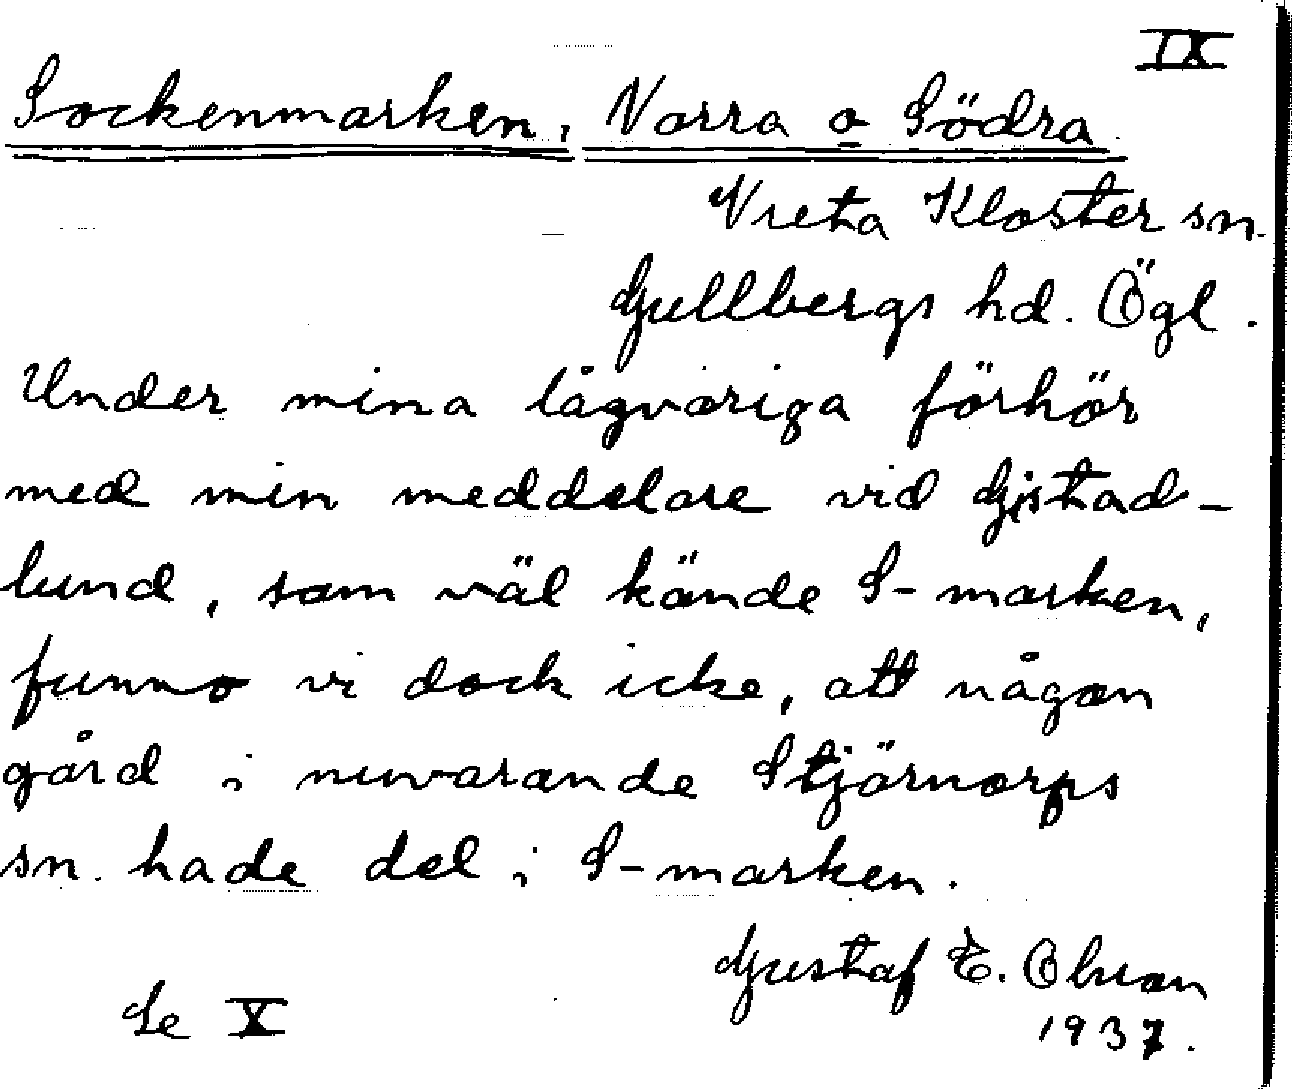 IX
Sockenmarken, Norra o Södra.
Vreta Kloster sn.
Gullbergs hd. Ögl.
Under mina lågvariga förhör
med min meddelare vid Gistad-
lund, som väl kände S-marken,
funno vi dock icke, att någon
gård i nuvarande Stjärnorps
sn. hade del i S-marken.
Gustaf E. Olsson
1937.
Se X